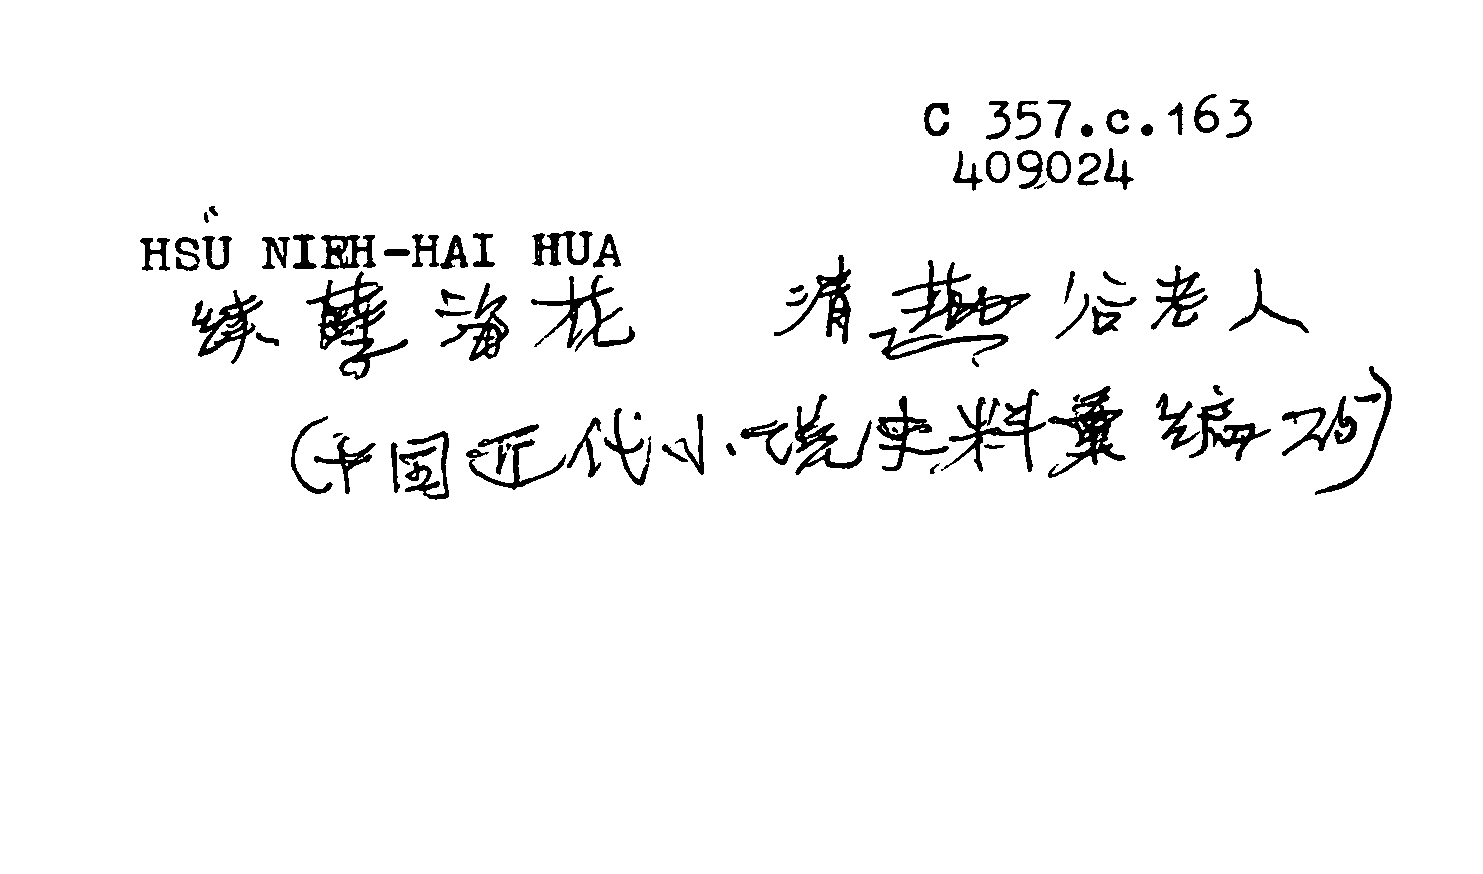 C 357.c.163
409024
HSÜ NIEH-HAI HUA
续孽海花 清燕谷老人
(中国近代小说史料汇编 25)